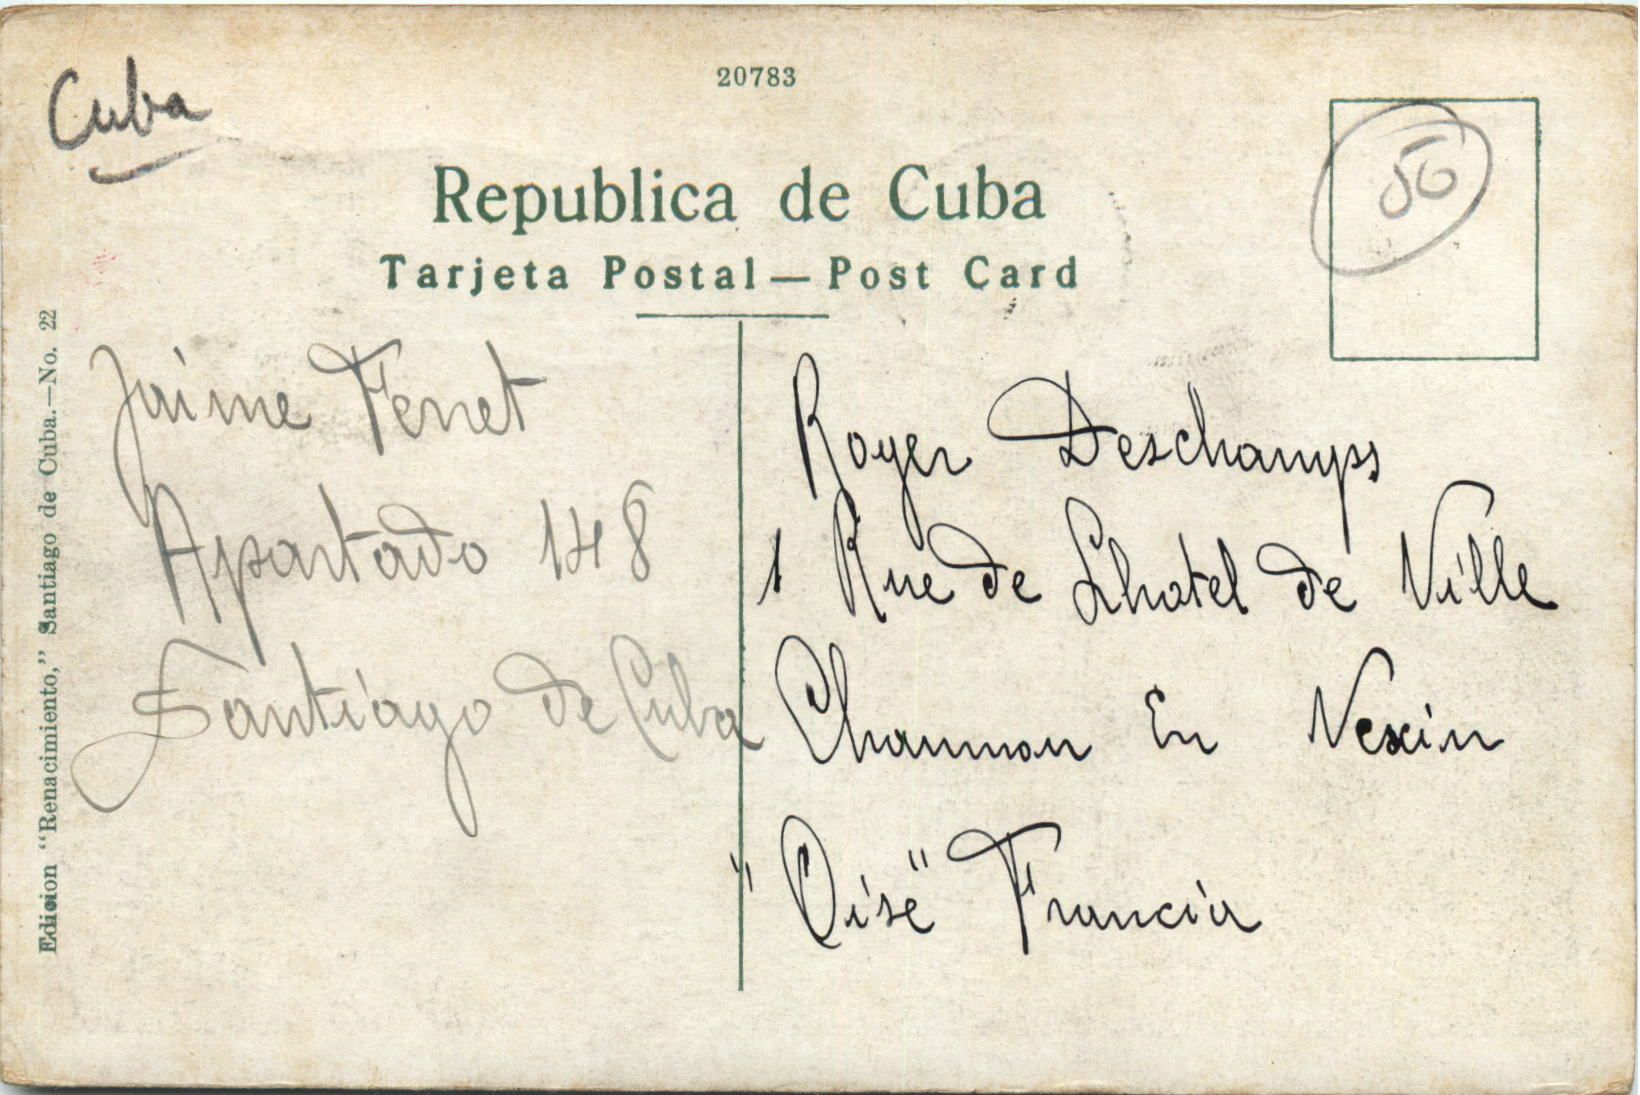 Cuba
20783
50
Republica de Cuba
Tarjeta Postal — Post Card
Edicion "Renacimiento," Santiago de Cuba.—No. 22
Jaime Ferret
Apartado 148
Santiago de Cuba
Roger Deschamps
1 Rue de Lhotel de Ville
Chaumon En Vexin
"Oise" Francia